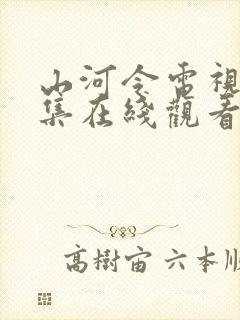 山河令電視
集在綫觀看
高樹宙 六本順